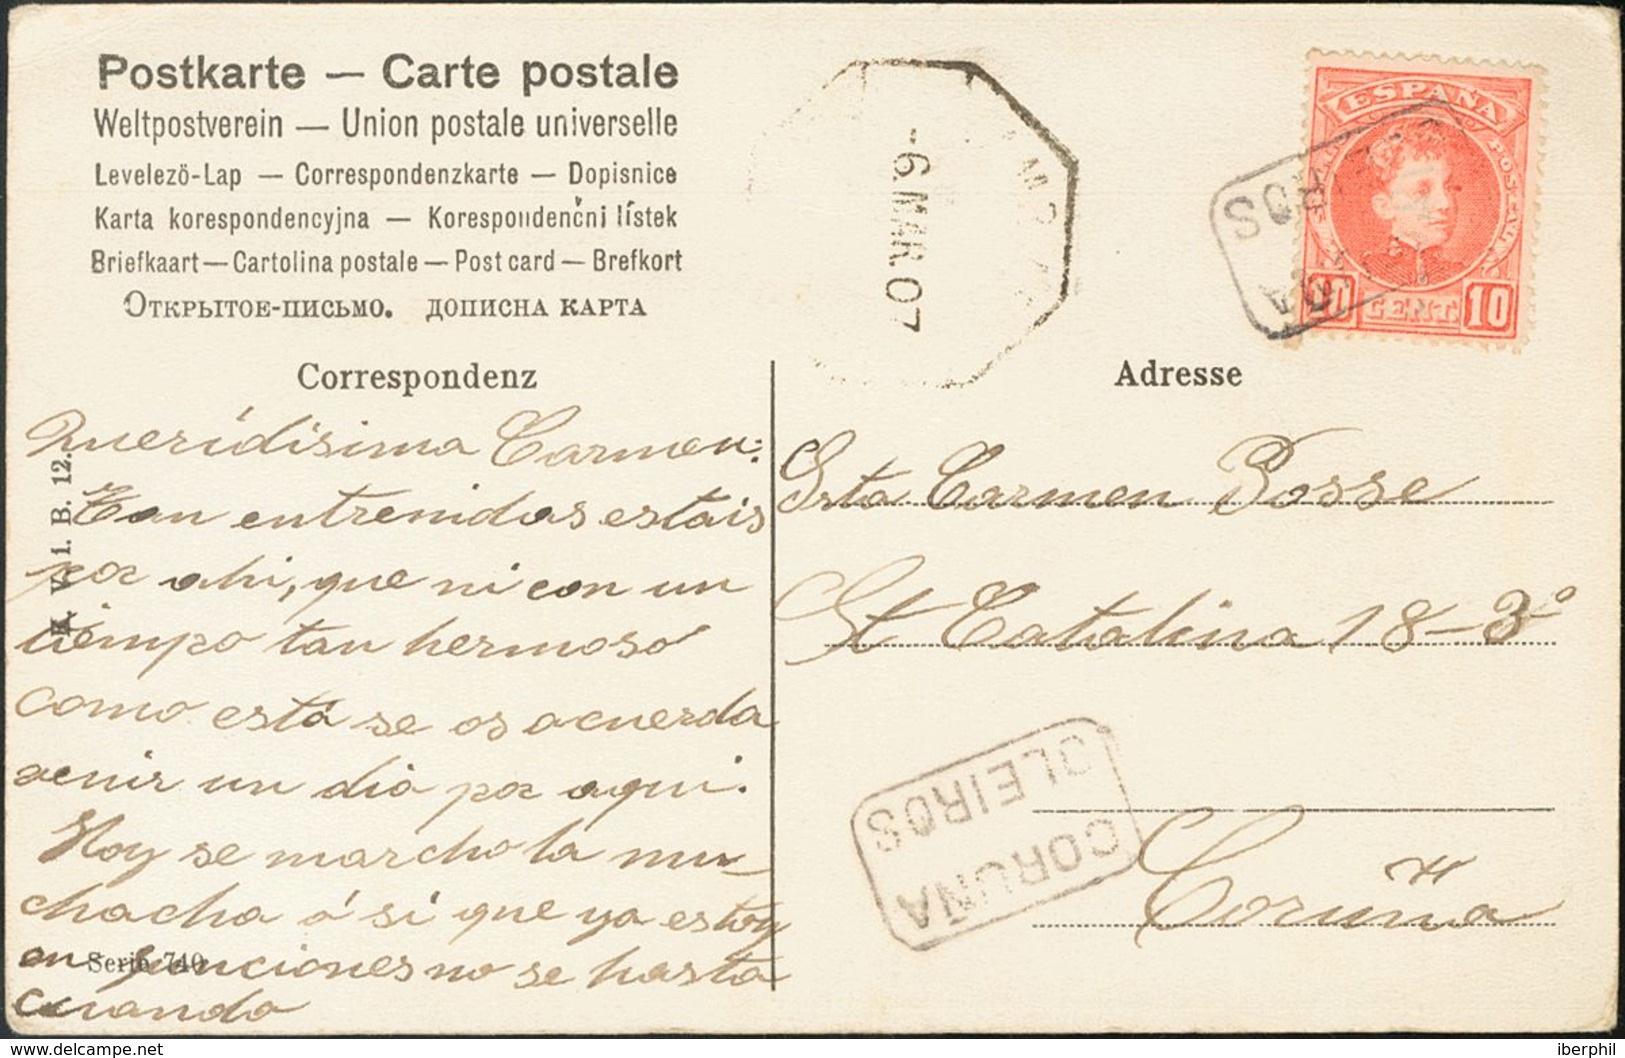 Postkarte — Carte postale
Weltpostverein — Union postale universelle
Levelezö-Lap — Correspondenzkarte — Dopisnice
Karta korespondencyjna — Korespondenčni lístek
Briefkaart — Cartolina postale — Post card — Brefkort
Открытое-письмо. дописна карта
Correspondenz
Queridísima Carmen:
Tan entrenidas estais
por ahi, que ni con un
tiempo tan hermoso
como está se os acuerda
venir un dia por aqui.
Hoy se marcho la mu-
chacha ó sí que ya estoy
en funciones no se hasta
cuando
K. V. i. B. 12.
Serie 740
-6 MAR. 07
ESPAÑA
10 CENT. 10
Adresse
Srta Carmen Posse
St Catalina 18-3º
Coruña
OLEIROS
CORUÑA
delcampe.net
iberphil